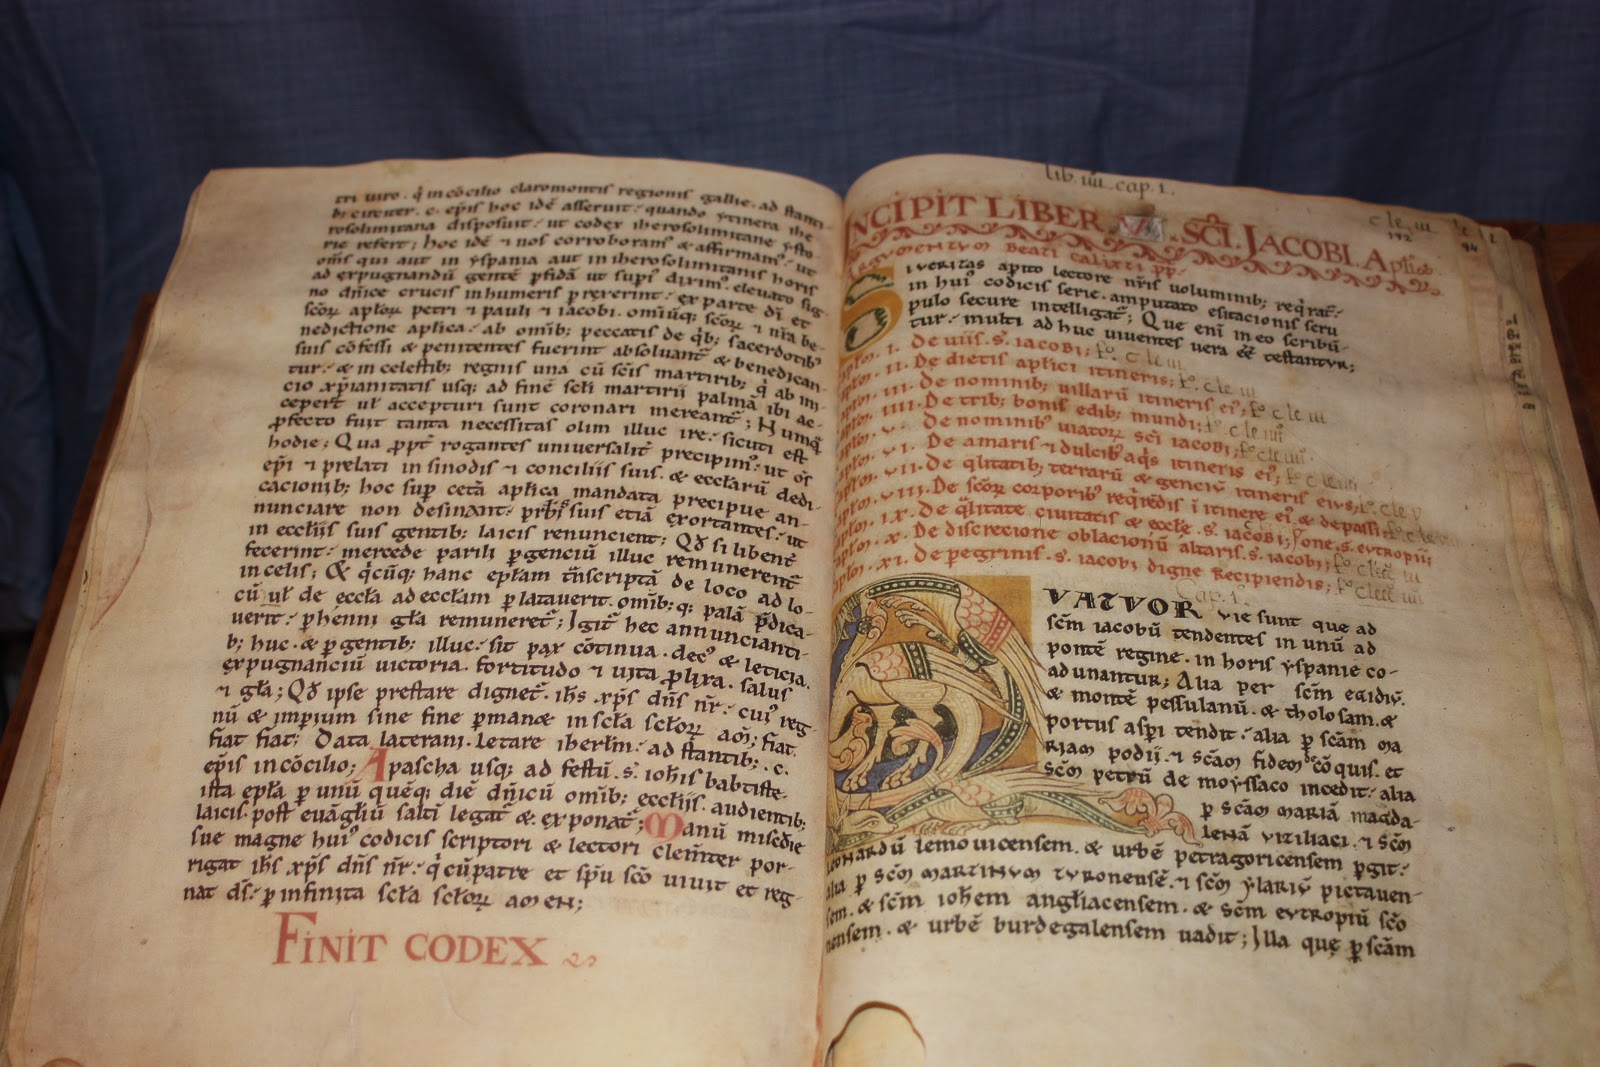 tri uiro. q̇ in cōcilio claromontis regionis gallie. ad stanti-
b; circiter. c. ep̄is hoc idē asseruit. quando ẏtinera ihe
rosolimitana disposuit. ut codex iherosolimitane ẏsto-
rie refert; hoc idē ⁊ nos corroboramꝰ & affirmamꝰ. ut
om̄s qui aut in ẏspania aut in iherosolimitanis horis
ad expugnandū gentē ꝑfidā ut supꝰ diximꝰ. eleuato sig
no dn̄ice crucis in humeris ꝑrexerint. ex parte dī et
sc̄oꝝ apl̄oꝝ petri ⁊ pauli ⁊ iacobi. omiūq; sc̄oꝝ ⁊ nr̄a be-
nedictione aplica. ab omīb; peccatis de q̇b; sacerdotibꝰ
suis cōfessi & penitentes fuerint absoluant̄ & benedican-
tur. & in celestib; regnis una cū sc̄is martirib; q̇ ab ini-
cio xp̄ianitatis usq; ad finē sc̄li martirii palmā ibi ac-
ceper̄t ul̄ accepturi sunt coronari mereant̄; Nunq̄
ꝓfecto fuit tanta necessitas olim illuc ire. sicuti est
hodie; Qua ꝓpt̄ rogantes uniuersalit̄ precipimꝰ. ut om̄s
ep̄i ⁊ prelati in sinodis ⁊ conciliis suis. & eccl̄arū dedi-
cacionib; hoc sup̄ cetā apl̄ica mandata precipue an-
nunciare non desinant. prb̄os suis etiā exortantes. ut
in eccl̄iis suis gentib; laicis renuncient; Qd̄ si libent̄
fecerint. mercede parili ꝑgenciū illuc remunerent̄
in celis; Et q̇cūq; hanc epl̄am t̄nscriptā de loco ad lo-
cū ul̄ de eccl̄a ad eccl̄am ꝑlatauerit. omīb; q; palā p̄dica-
uerit. ꝑhenni gl̄a remuneret̄; Igit̄ hec annuncianti-
b; huc. & ꝑgentib; illuc. sit pax cōtinua. decꝰ & leticia.
expugnanciū uictoria. fortitudo ⁊ uita ꝓlixa. salus
⁊ gl̄a; Qd̄ ipse prestare dignet̄. ih̄s xp̄s dn̄s nr̄. cuiꝰ reg-
nū & imꝑium sine fine ꝑmanet in sc̄la sc̄loꝝ am̄; fiat.
fiat fiat; Data laterani. letare iherl̄m. ad stantib;. c.
ep̄is in cōcilio; A pascha usq; ad festū. s̄. ioh̄is babtiste.
ista epl̄a ꝑ unū quēq; diē dn̄icū omīb; eccl̄iis. audientib;
laicis. post euāgl̄iū saltī legat̄ & exponat̄; Manū misc̄die
sue magne huiꝰ codicis scriptori & lectori clem̄ter por-
rigat ih̄s xp̄s dn̄s nr̄. q̇ cū patre et sp̄u sc̄o uiuit et reg-
nat ds̄. ꝑ infinita sc̄la sc̄loꝝ amen;
FINIT CODEX
lib. iiii. cap. 1.
INCIPIT LIBER .SC̄I. JACOBI. Apl̄i
192
94
Argumentum Beati Calixti pp̄.
Si ueritas apito lectore nr̄is uoluminib; req̇rat̄.
in huiꝰ codicis serie. amputato esitacionis scru
pulo secure intelligat̄; Que enī in eo scribū-
tur. multi ad huc uiuentes uera eē testantur;
I. De uiis. s̄. iacobi;
II. De dietis apl̄ici itineris;
III. De nominib; uillarū itineris eiꝰ;
IIII. De trib; bonis edib; mundi;
V. De nominibꝰ uiatoꝝ sc̄i iacobi;
VI. De amaris ⁊ dulcibꝰ aq̇s itineris eiꝰ;
VII. De q̄litatib; terrarū & genciū itineris eius;
VIII. De sc̄oꝝ corporibꝰ req̇rēdis ī itinere eiꝰ & de passione. s. eutropii;
IX. De q̄litate ciuitatis & eccl̄e. s. iacobi;
X. De discrecione oblacionū altaris. s. iacobi;
XI. De peregrinis. s. iacobi digne recipiendis;
Cap. 1.
QVATVOR vie sunt que ad
sc̄m iacobū tendentes in unū ad
pontē regine. in horis ẏspanie co-
adunantur; Alia per sc̄m egidiū.
& montē pessulanū. & tholosam. &
portus asp̄i tendit. alia ꝑ sc̄am ma
riam podii. ⁊ sc̄am fidem cōquis. et
sc̄m petrū de moẏssaco incedit. alia
ꝑ sc̄am mariā magda-
lenā viziliaci. ⁊ sc̄m
leonardū lemouicensem. & urbē petragoricensem ꝑgit.
alia ꝑ sc̄m martinum turonensē. ⁊ sc̄m ẏlariū pictauen-
sem. & sc̄m ioh̄em angl̄iacensem. & sc̄m eutropiū sc̄o
nensem. & urbē burdegalensem uadit; Illa que ꝑ sc̄am